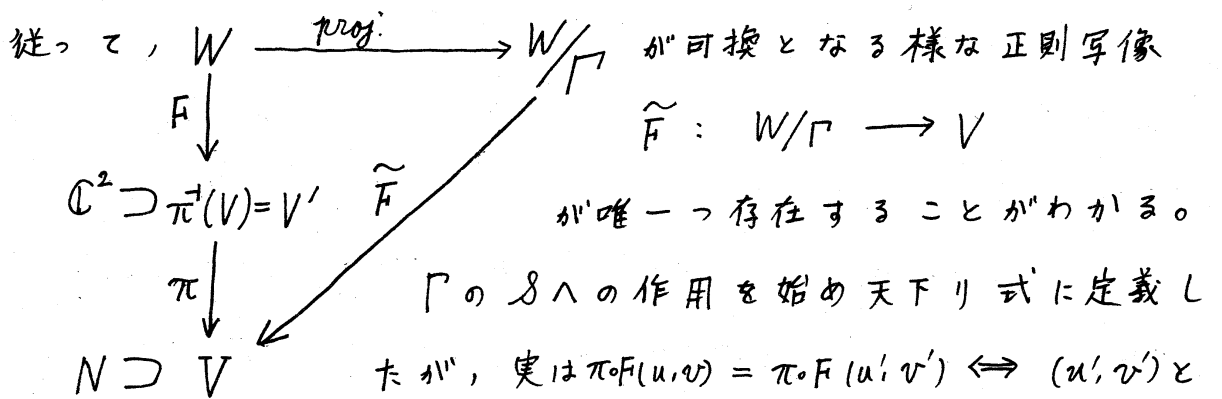 従って, W proj. W/Γ が可換となる様な正則写像
F
F̃ : W/Γ → V
ℂ² ⊃ π⁻¹(V)=V' F̃
が唯一つ存在することがわかる。
π
ΓのSへの作用を始め天下り式に定義し
N ⊃ V
たが, 実はπ∘F(u,v) = π∘F(u',v') ⟺ (u',v')と